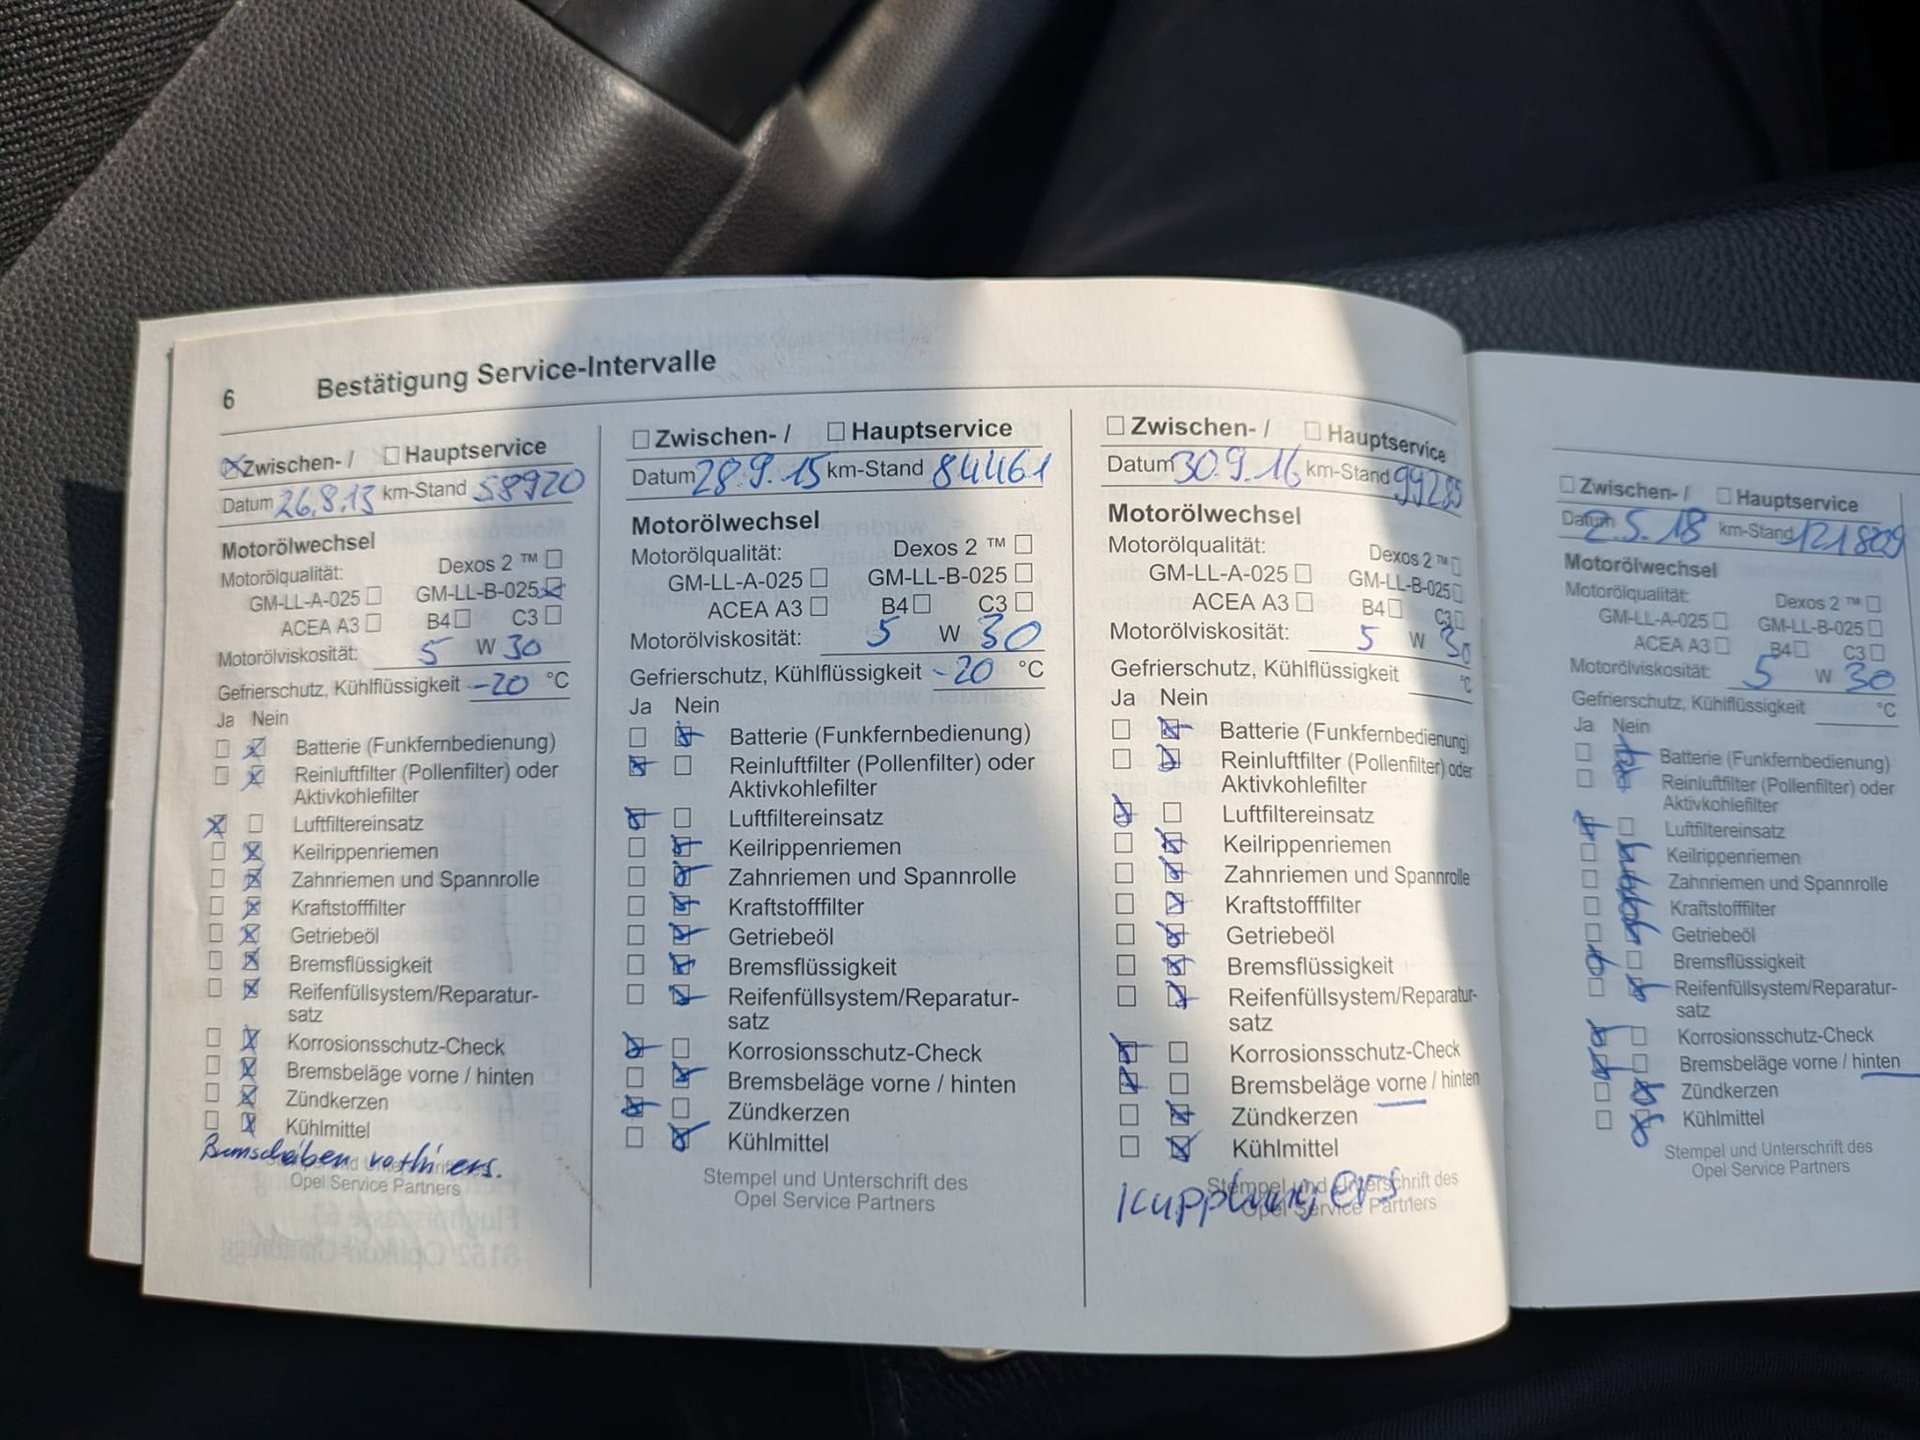 6 Bestätigung Service-Intervalle
Zwischen- / Hauptservice
Datum 26.8.13 km-Stand 58920
Motorölwechsel
Motorölqualität: Dexos 2 ™
GM-LL-A-025 GM-LL-B-025
ACEA A3 B4 C3
Motorölviskosität: 5 W 30
Gefrierschutz, Kühlflüssigkeit -20 °C
Ja Nein
Batterie (Funkfernbedienung)
Reinluftfilter (Pollenfilter) oder
Aktivkohlefilter
Luftfiltereinsatz
Keilrippenriemen
Zahnriemen und Spannrolle
Kraftstofffilter
Getriebeöl
Bremsflüssigkeit
Reifenfüllsystem/Reparatur-
satz
Korrosionsschutz-Check
Bremsbeläge vorne / hinten
Zündkerzen
Kühlmittel
ers.
Opel Service Partners
Zwischen- / Hauptservice
Datum 28.9.15 km-Stand 84461
Motorölwechsel
Motorölqualität: Dexos 2 ™
GM-LL-A-025 GM-LL-B-025
ACEA A3 B4 C3
Motorölviskosität: 5 W 30
Gefrierschutz, Kühlflüssigkeit -20 °C
Ja Nein
Batterie (Funkfernbedienung)
Reinluftfilter (Pollenfilter) oder
Aktivkohlefilter
Luftfiltereinsatz
Keilrippenriemen
Zahnriemen und Spannrolle
Kraftstofffilter
Getriebeöl
Bremsflüssigkeit
Reifenfüllsystem/Reparatur-
satz
Korrosionsschutz-Check
Bremsbeläge vorne / hinten
Zündkerzen
Kühlmittel
Stempel und Unterschrift des
Opel Service Partners
Zwischen- / Hauptservice
Datum 30.9.16 km-Stand 99285
Motorölwechsel
Motorölqualität: Dexos 2 ™
GM-LL-A-025 GM-LL-B-025
ACEA A3 B4 C3
Motorölviskosität: 5 W 30
Gefrierschutz, Kühlflüssigkeit °C
Ja Nein
Batterie (Funkfernbedienung)
Reinluftfilter (Pollenfilter) oder
Aktivkohlefilter
Luftfiltereinsatz
Keilrippenriemen
Zahnriemen und Spannrolle
Kraftstofffilter
Getriebeöl
Bremsflüssigkeit
Reifenfüllsystem/Reparatur-
satz
Korrosionsschutz-Check
Bremsbeläge vorne / hinten
Zündkerzen
Kühlmittel
Stempel und Unterschrift des
Kupplung ers
Opel Service Partners
Zwischen- / Hauptservice
Datum 2.5.18 km-Stand 121809
Motorölwechsel
Motorölqualität: Dexos 2 ™
GM-LL-A-025 GM-LL-B-025
ACEA A3 B4 C3
Motorölviskosität: 5 W 30
Gefrierschutz, Kühlflüssigkeit °C
Ja Nein
Batterie (Funkfernbedienung)
Reinluftfilter (Pollenfilter) oder
Aktivkohlefilter
Luftfiltereinsatz
Keilrippenriemen
Zahnriemen und Spannrolle
Kraftstofffilter
Getriebeöl
Bremsflüssigkeit
Reifenfüllsystem/Reparatur-
satz
Korrosionsschutz-Check
Bremsbeläge vorne / hinten
Zündkerzen
Kühlmittel
Stempel und Unterschrift des
Opel Service Partners